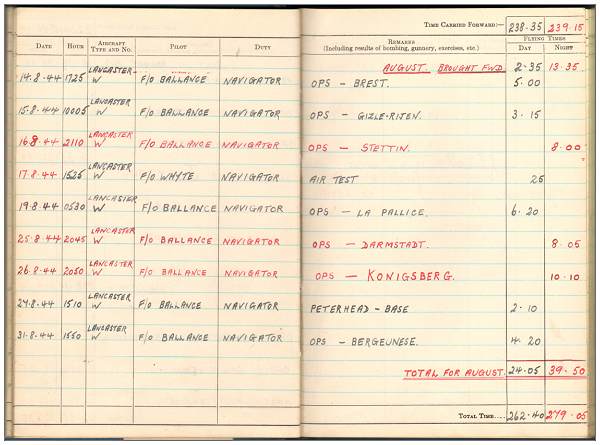 TIME CARRIED FORWARD:— 238.35 239.15
DATE HOUR AIRCRAFT TYPE AND NO. PILOT DUTY REMARKS (Including results of bombing, gunnery, exercises, etc.) FLYING TIMES DAY NIGHT
AUGUST BROUGHT FWD 2.35 13.35
14.8.44 1725 LANCASTER W F/O BALLANCE NAVIGATOR OPS – BREST. 5.00
15.8.44 10005 LANCASTER W F/O BALLANCE NAVIGATOR OPS – GIZLE-RIJEN. 3.15
16.8.44 2110 LANCASTER W F/O BALLANCE NAVIGATOR OPS – STETTIN. 8.00
17.8.44 1525 LANCASTER W F/O WHYTE NAVIGATOR AIR TEST 25
19.8.44 0530 LANCASTER W F/O BALLANCE NAVIGATOR OPS – LA PALLICE. 6.20
25.8.44 2045 LANCASTER W F/O BALLANCE NAVIGATOR OPS – DARMSTADT. 8.05
26.8.44 2050 LANCASTER W F/O BALLANCE NAVIGATOR OPS – KONIGSBERG. 10.10
29.8.44 1510 LANCASTER W F/O BALLANCE NAVIGATOR PETERHEAD – BASE 2.10
31.8.44 1550 LANCASTER W F/O BALLANCE NAVIGATOR OPS – BERGEUNESE. 4.20
TOTAL FOR AUGUST. 24.05 39.50
TOTAL TIME.... 262.40 279.05